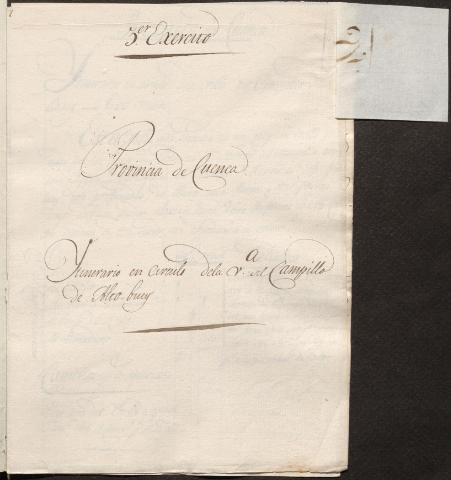 3.er Exercito
Provincia de Cuenca
Ytenerario en circulo dela v.a del Campillo
de Alto-buey